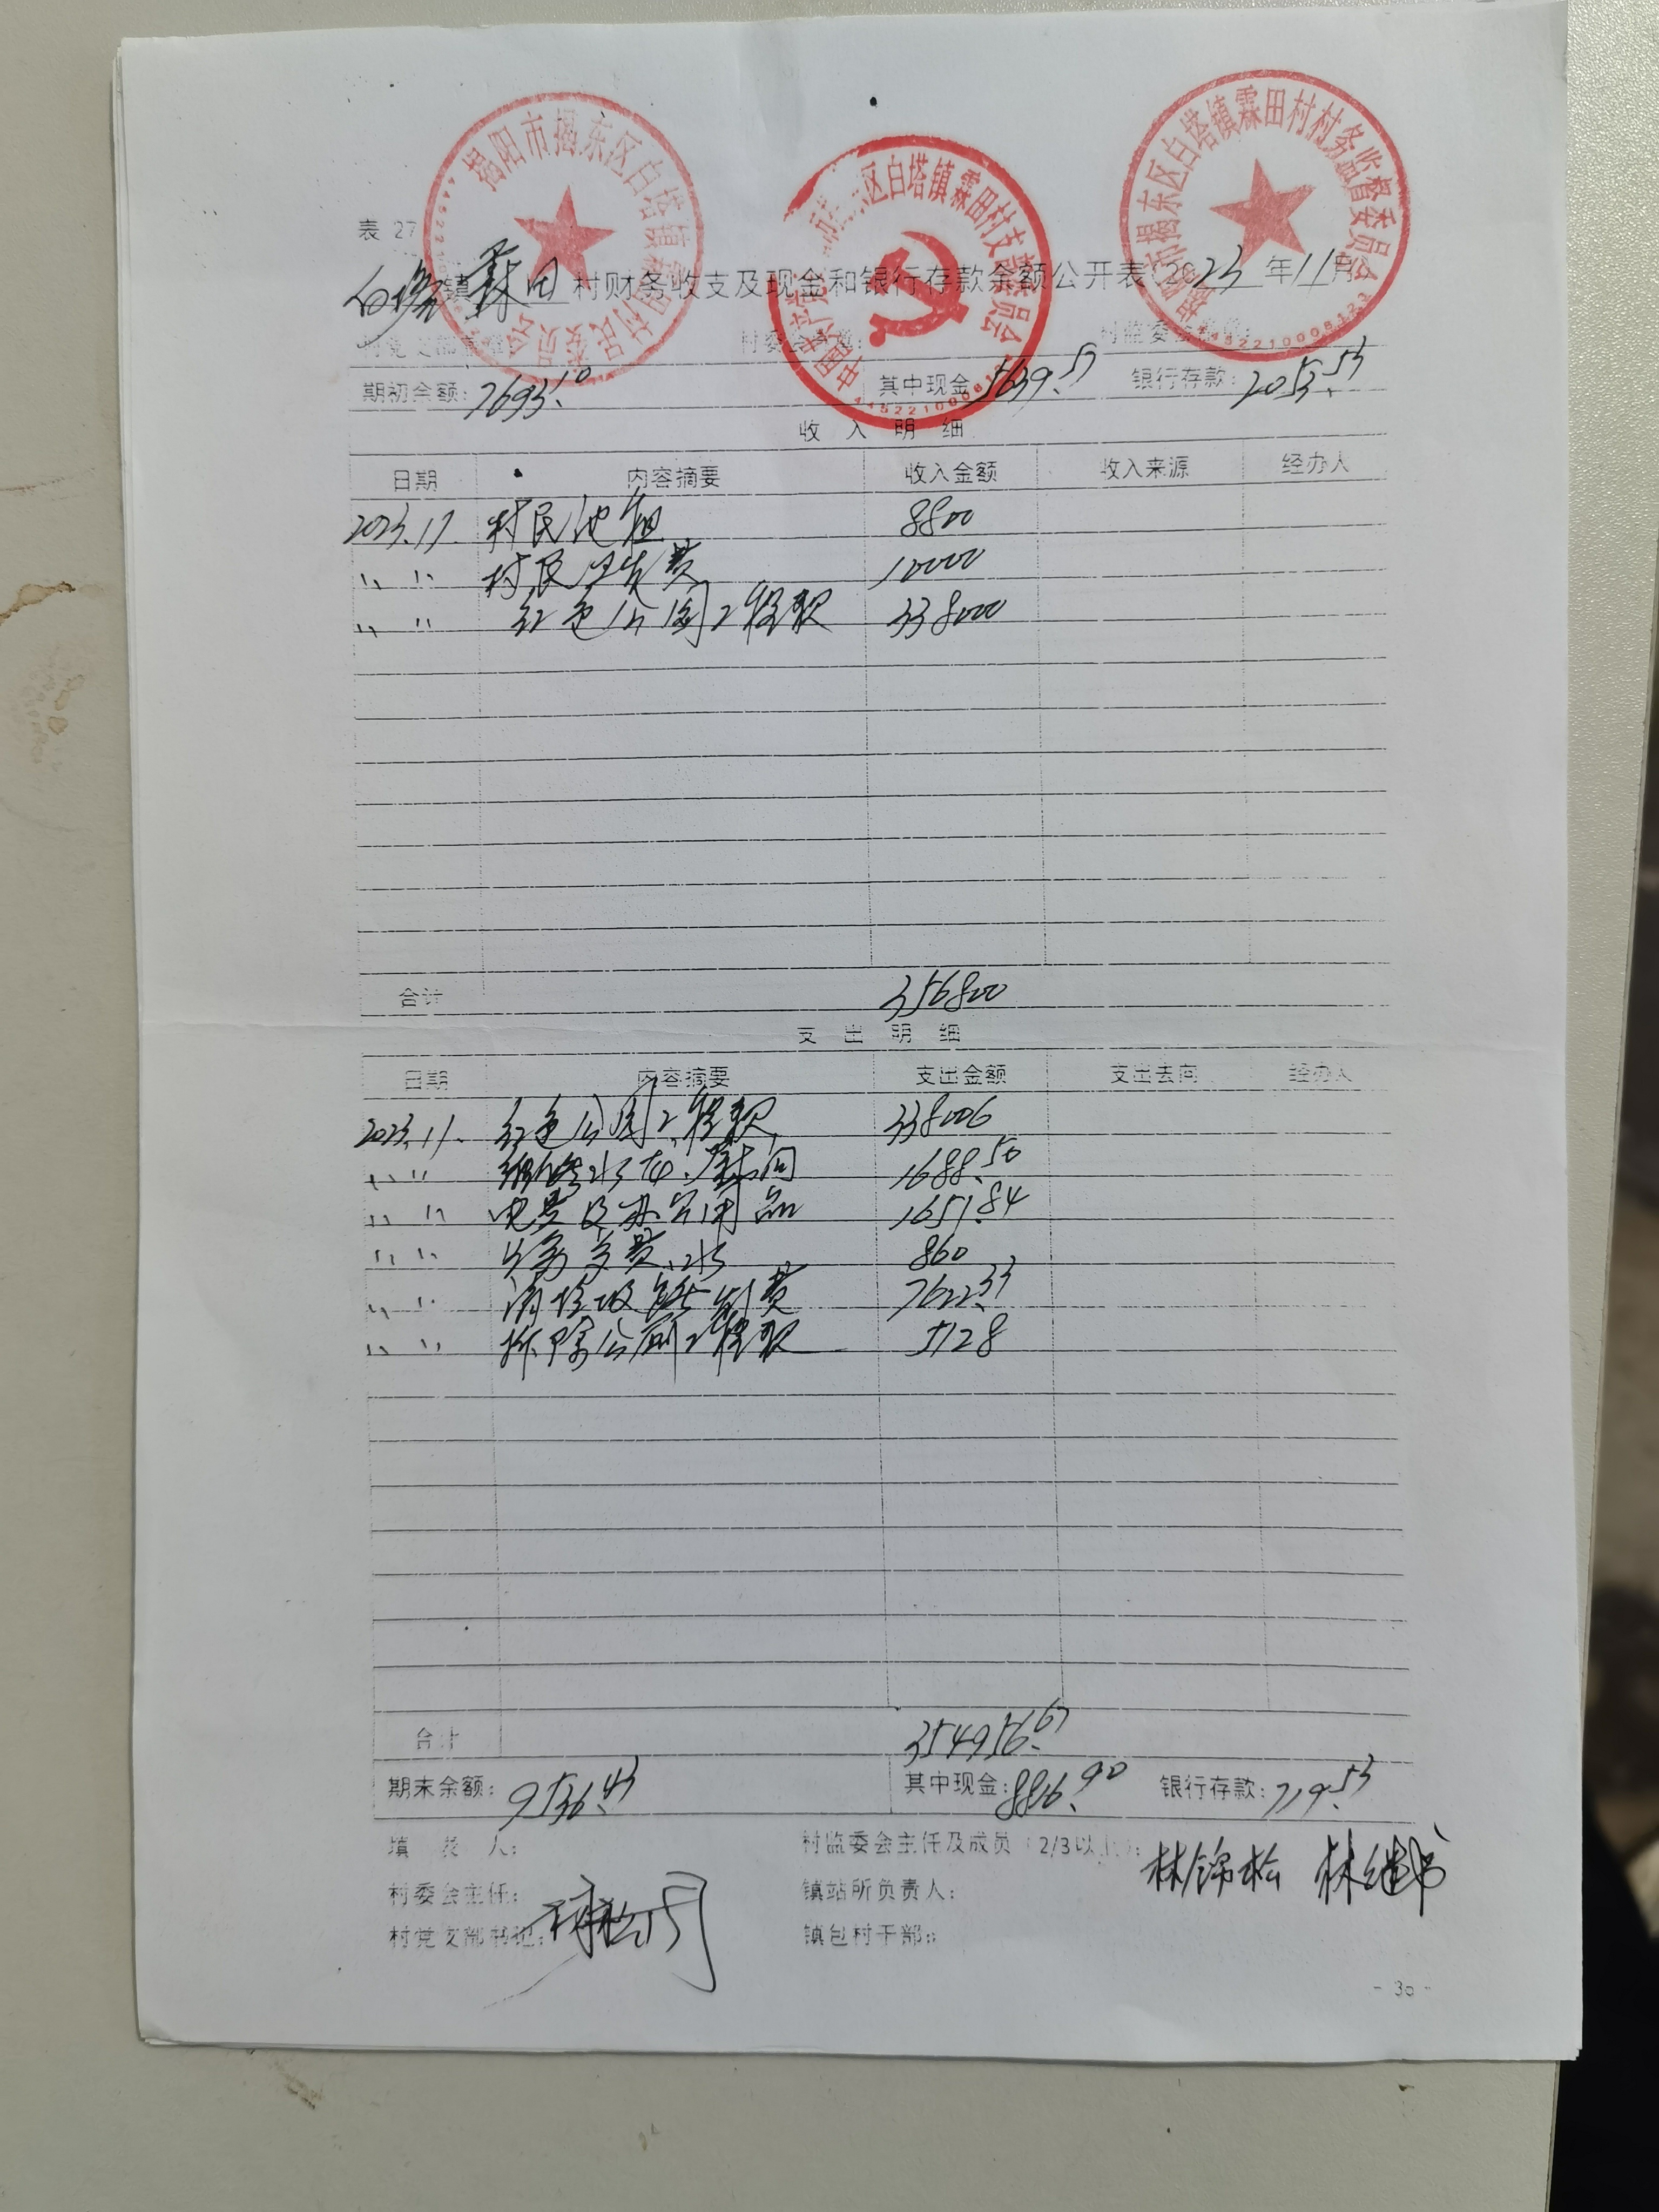 揭阳市揭东区白塔镇霖田村村民委员会
揭东区白塔镇霖田村支部委员会
中国共产党
揭阳市揭东区白塔镇霖田村村务监督委员会
4452210008123
表 27
白塔镇霖田村财务收支及现金和银行存款余额公开表(2023年11月)
期初余额:7693.10 其中现金:5639.57 银行存款:2053.53
收入明细
日期 内容摘要 收入金额 收入来源 经办人
2023.11. 村民池租 8800
〃 〃 村民卫生费 10000
〃 〃 红色公园工程款 338000
合计 356800
支出明细
日期 内容摘要 支出金额 支出去向 经办人
2023.11. 红色公园工程款 338006
〃 〃 1688.50
〃 〃 电费及办公用品 1651.84
〃 〃 860
〃 〃 清垃圾 费 7622.33
〃 〃 拆除公厕工程款 5128
合计 354956.67
期末余额:9536.43 其中现金:8816.90 银行存款:719.53
填表人: 村监委会主任及成员(2/3以上): 林锦松 林继
村委会主任: 镇站所负责人:
村党支部书记: 镇包村干部:
- 30 -